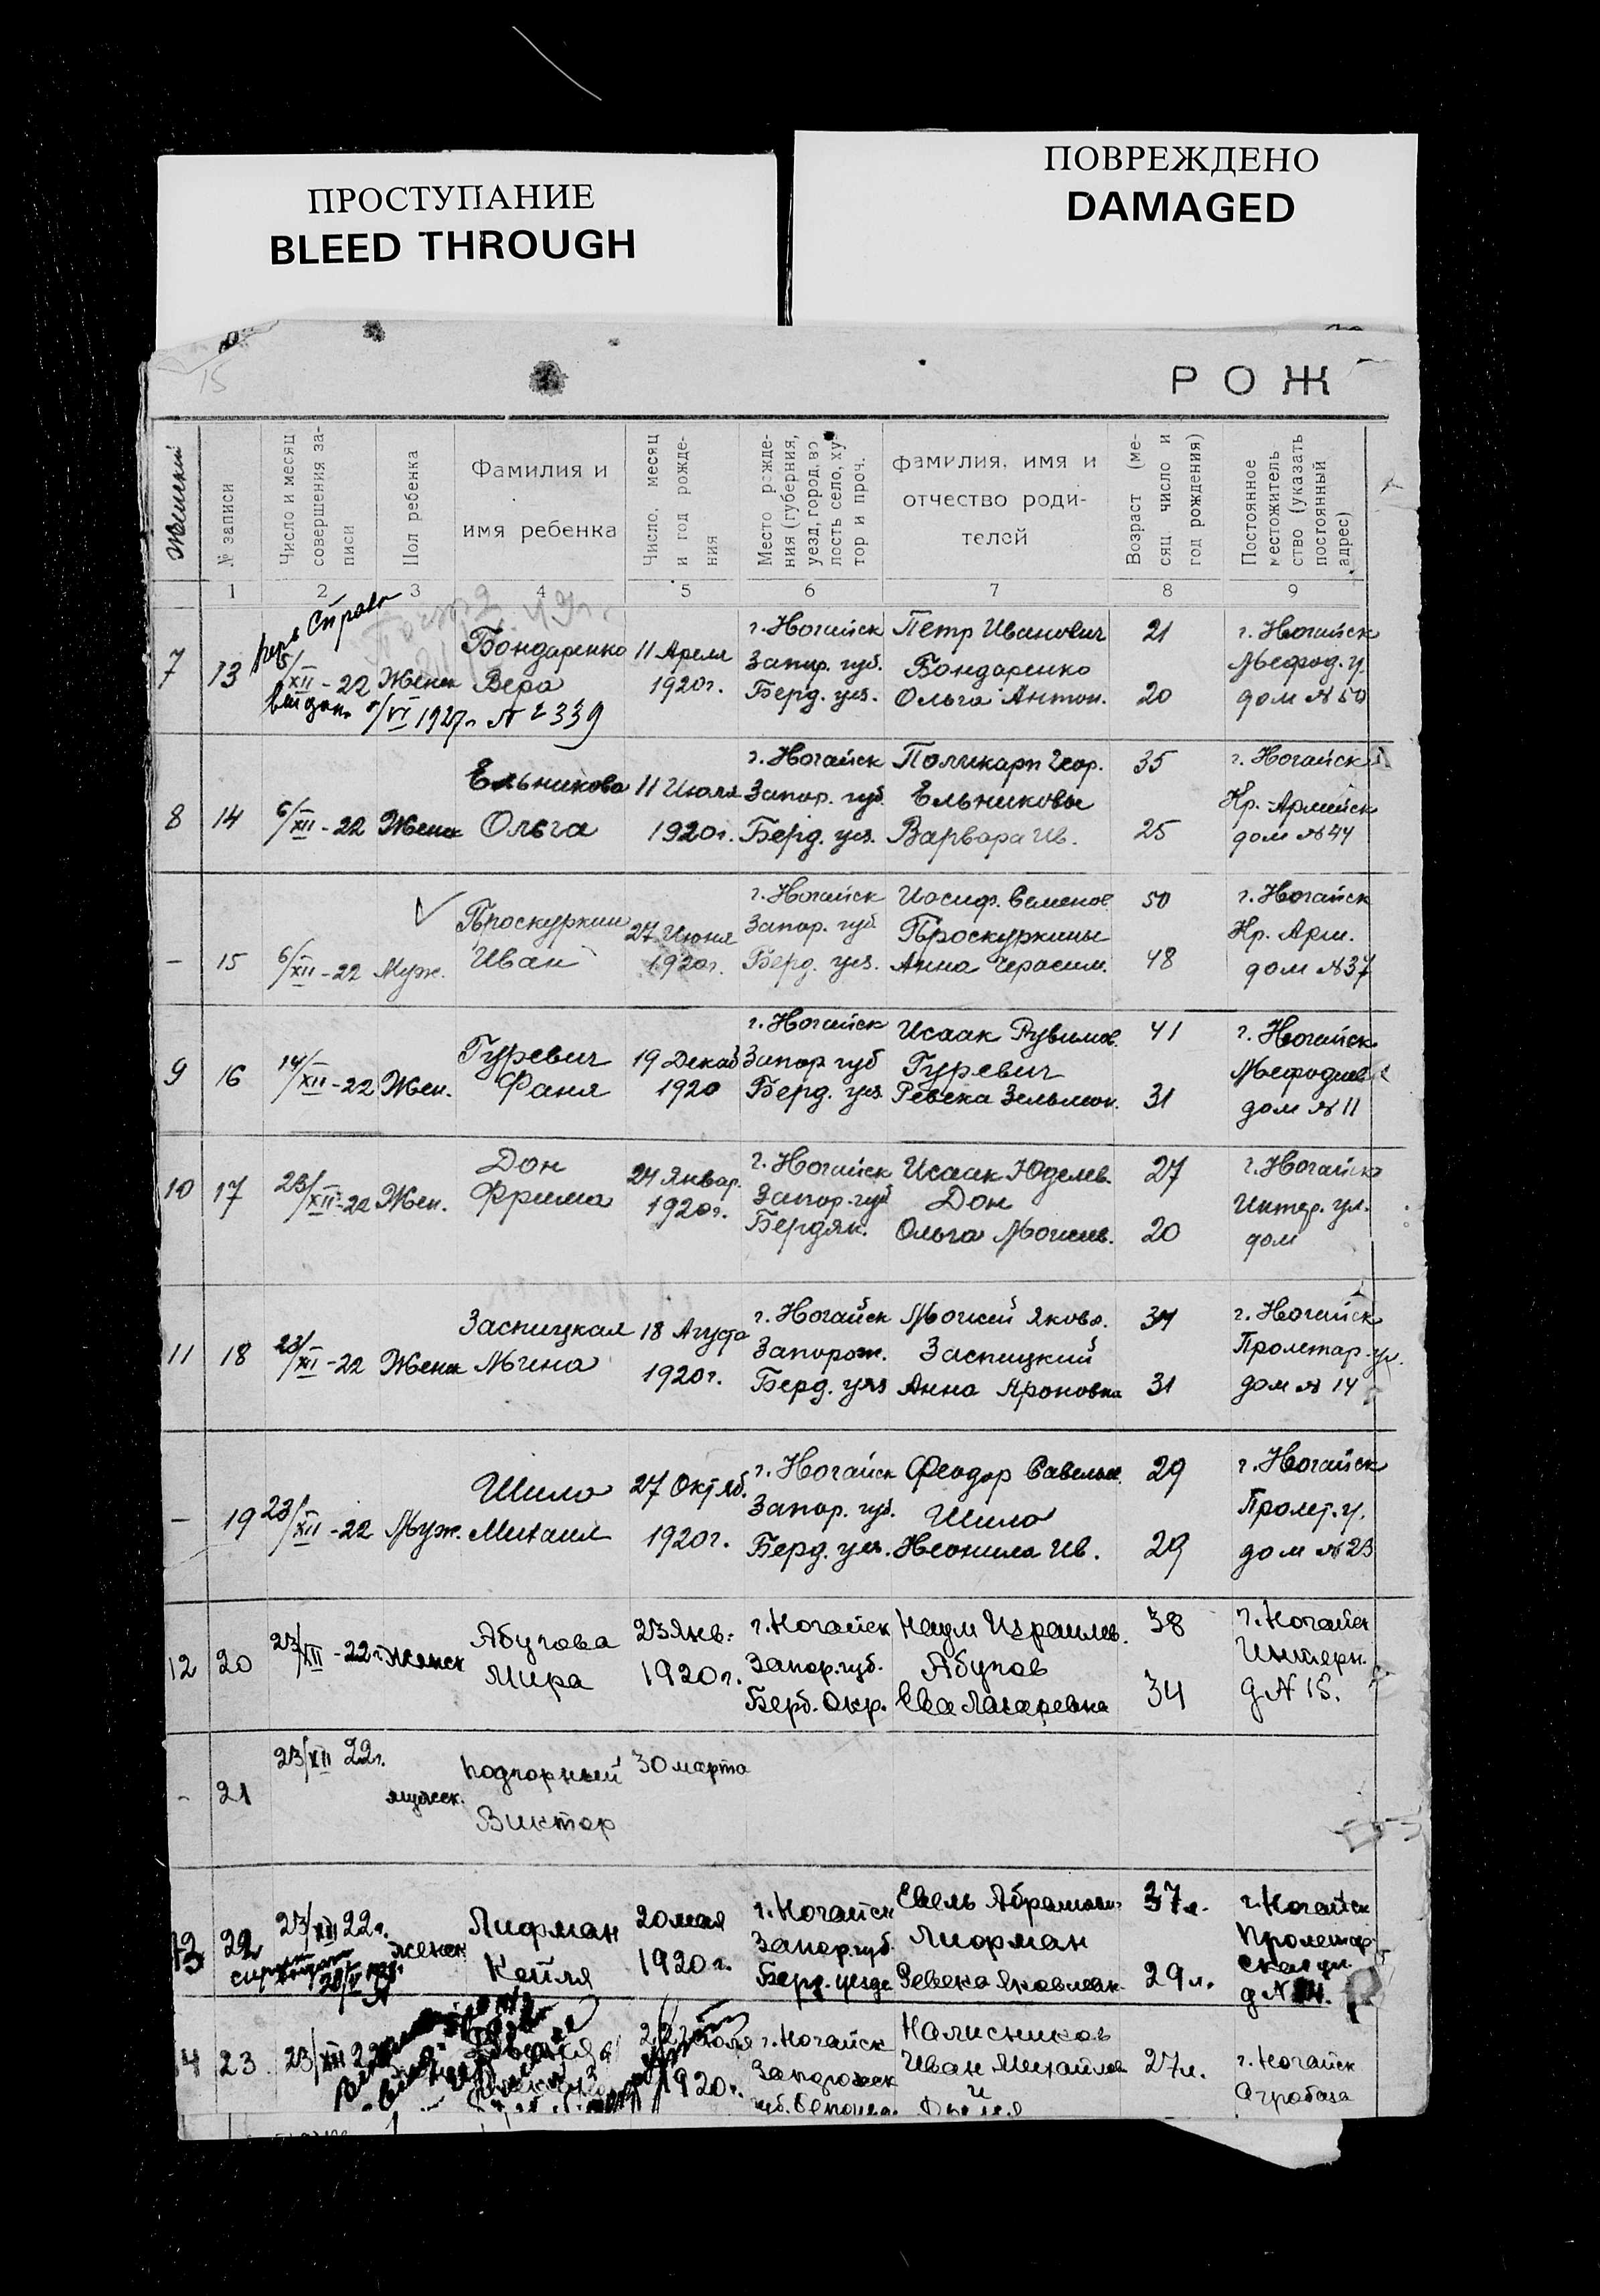 ПРОСТУПАНИЕ
BLEED THROUGH
ПОВРЕЖДЕНО
DAMAGED
15
РОЖ
Женский
№ записи
Число и месяц
совершения за-
писи
Пол ребенка
Фамилия и
имя ребенка
Число, месяц
и год рожде-
ния
Место рожде-
ния (губерния,
уезд, город, во
лость село, ху-
тор и проч.
фамилия, имя и
отчество роди-
телей
Возраст (ме-
сяц число и
год рождения)
Постоянное
местожитель
ство (указать
постоянный
адрес)
1 2 3 4 5 6 7 8 9
7 13 5/XII-22 Женск
Бондаренко
Вера
11 Апреля
1920г.
г. Ногайск
Запор. губ.
Берд. уез.
Петр Иванович
Бондаренко
Ольга Антон.
21
20
г. Ногайск
Мефод. у.
дом №50
VI 1927г. № 2339
8 14 6/XII-22 Женск
Ельникова
Ольга
11 Июля
1920г.
г. Ногайск
Запор. губ.
Берд. уез.
Поликарп Геор.
Ельниковы
Варвара Ив.
35
25
г. Ногайск
Кр.-Армейск
дом №44
- 15 6/XII-22 Муж.
Проскуркин
Иван
27 Июня
1920г.
г. Ногайск
Запор. губ
Берд. уез.
Иосиф. Семенов.
Проскуркины
Анна Герасим.
50
48
г. Ногайск
Кр. Арм.
дом №37
9 16 14/XII-22 Жен.
Гуревич
Фаня
19 Декаб
1920
г. Ногайск
Запор губ
Берд. уез.
Исаак Рувимов.
Гуревич
Ревека Зельман.
41
31
г. Ногайск
Мефодиев
дом №11
10 17 23/XII-22 Жен.
Дон
Фрима
24 Январ.
1920г.
г. Ногайск
Запор. губ
Бердян.
Исаак Юделев.
Дон
Ольга Моисеев.
27
20
г. Ногайск
Интер. ул.
дом
11 18 23/XII-22 Женск
Заспицкая
Мина
18 Агуста
1920г.
г. Ногайск
Запорож.
Берд. уез
Моисей Яковл.
Заспицкий
Анна Ароновна
34
31
г. Ногайск
Пролетар. ул.
дом №14
- 19 23/XII-22 Муж.
Шило
Михаил
27 Октяб.
1920г.
г. Ногайск
Запор. губ.
Берд. уез.
Феодор Савельев
Шило
Неонила Ив.
29
29
г. Ногайск
Пролет. у.
дом №23
12 20 23/XII-22г. Женск
Абугова
Мира
23 Янв.
1920г.
г. Ногайск
Запор. губ.
Берд. Окр.
Наум Израилев.
Абугов
Ева Лазаревна
38
34
г. Ногайск
Интерн.
д N 15.
- 21 23/XII 22г. мужеск.
Подгорный
Виктор
30 марта
13 22 23/XII 22г. женск
Лифман
Кейля
20 мая
1920г.
г. Ногайск
Запор. губ.
Берд. уезда
Евель Абрамович
Лифман
Ревека Яковлевн.
37л.
29л.
г. Ногайск
Пролетар-
ская ул.
14 23 23/XII 22
1920г.
г. Ногайск
Запорожск
Калисников
Иван Михайлов
и
27л.
г. Ногайск
Агробаза